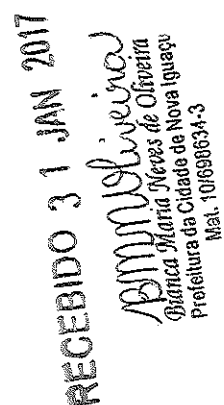 RECEBIDO 3 1 JAN 2017
Bianca Maria Neves de Oliveira
Prefeitura da Cidade de Nova Iguaçu
Mat. 10/698634-3